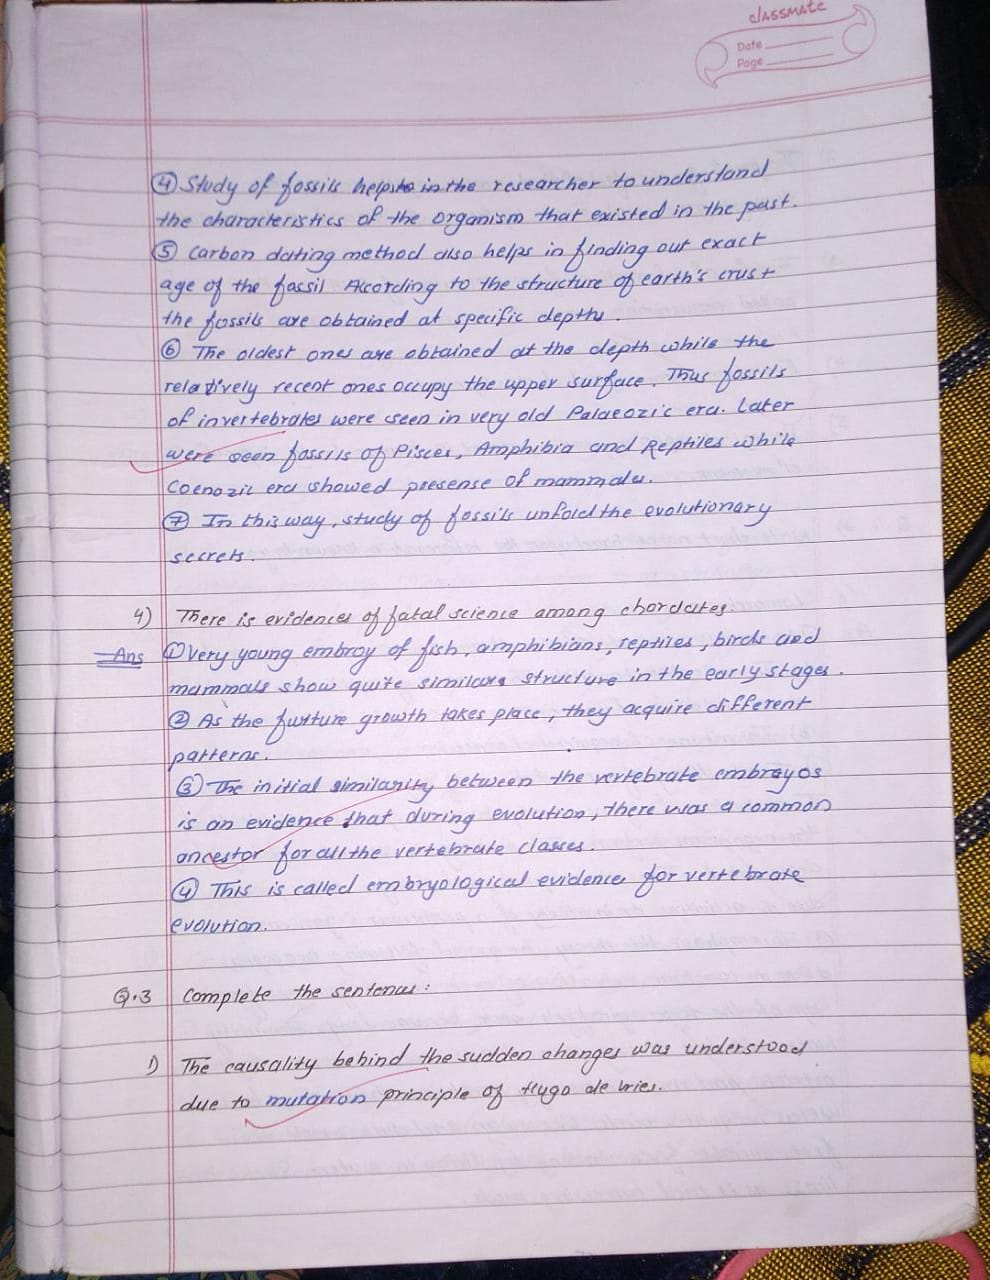 classmate
Date
Page
④ Study of fossils helps in the researcher to understand
the characteristics of the organism that existed in the past.
⑤ Carbon dating method also helps in finding out exact
age of the fassil According to the structure of earth's crust
the fossils are obtained at specific depths.
⑥ The oldest ones are obtained at the depth while the
relatively recent ones occupy the upper surface. Thus fossils
of invertebrates were seen in very old Palaeozic era. Later
were seen fossils of Pisces, Amphibia and Reptiles while
Coenozic era showed presense of mammals.
⑦ In this way, study of fossils unfold the evolutionary
secrets.
4) There is evidences of fatal science among chordates.
Ans ① Very young embroy of fish, amphibians, reptiles, birds and
mammals show quite similar structure in the early stages.
② As the furture growth takes place, they acquire different
patterns.
③ The initial similarity between the vertebrate embrayos
is an evidence that during evolution, there was a common
ancestor for all the vertebrate classes.
④ This is called embryological evidence for vertebrate
evolution.
Q.3 Complete the sentences:
1) The causality behind the sudden changes was understood
due to mutation principle of Hugo de vries.